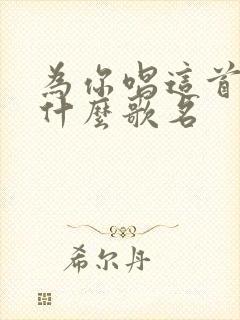 為你唱這首
什麼歌名
希尔丹